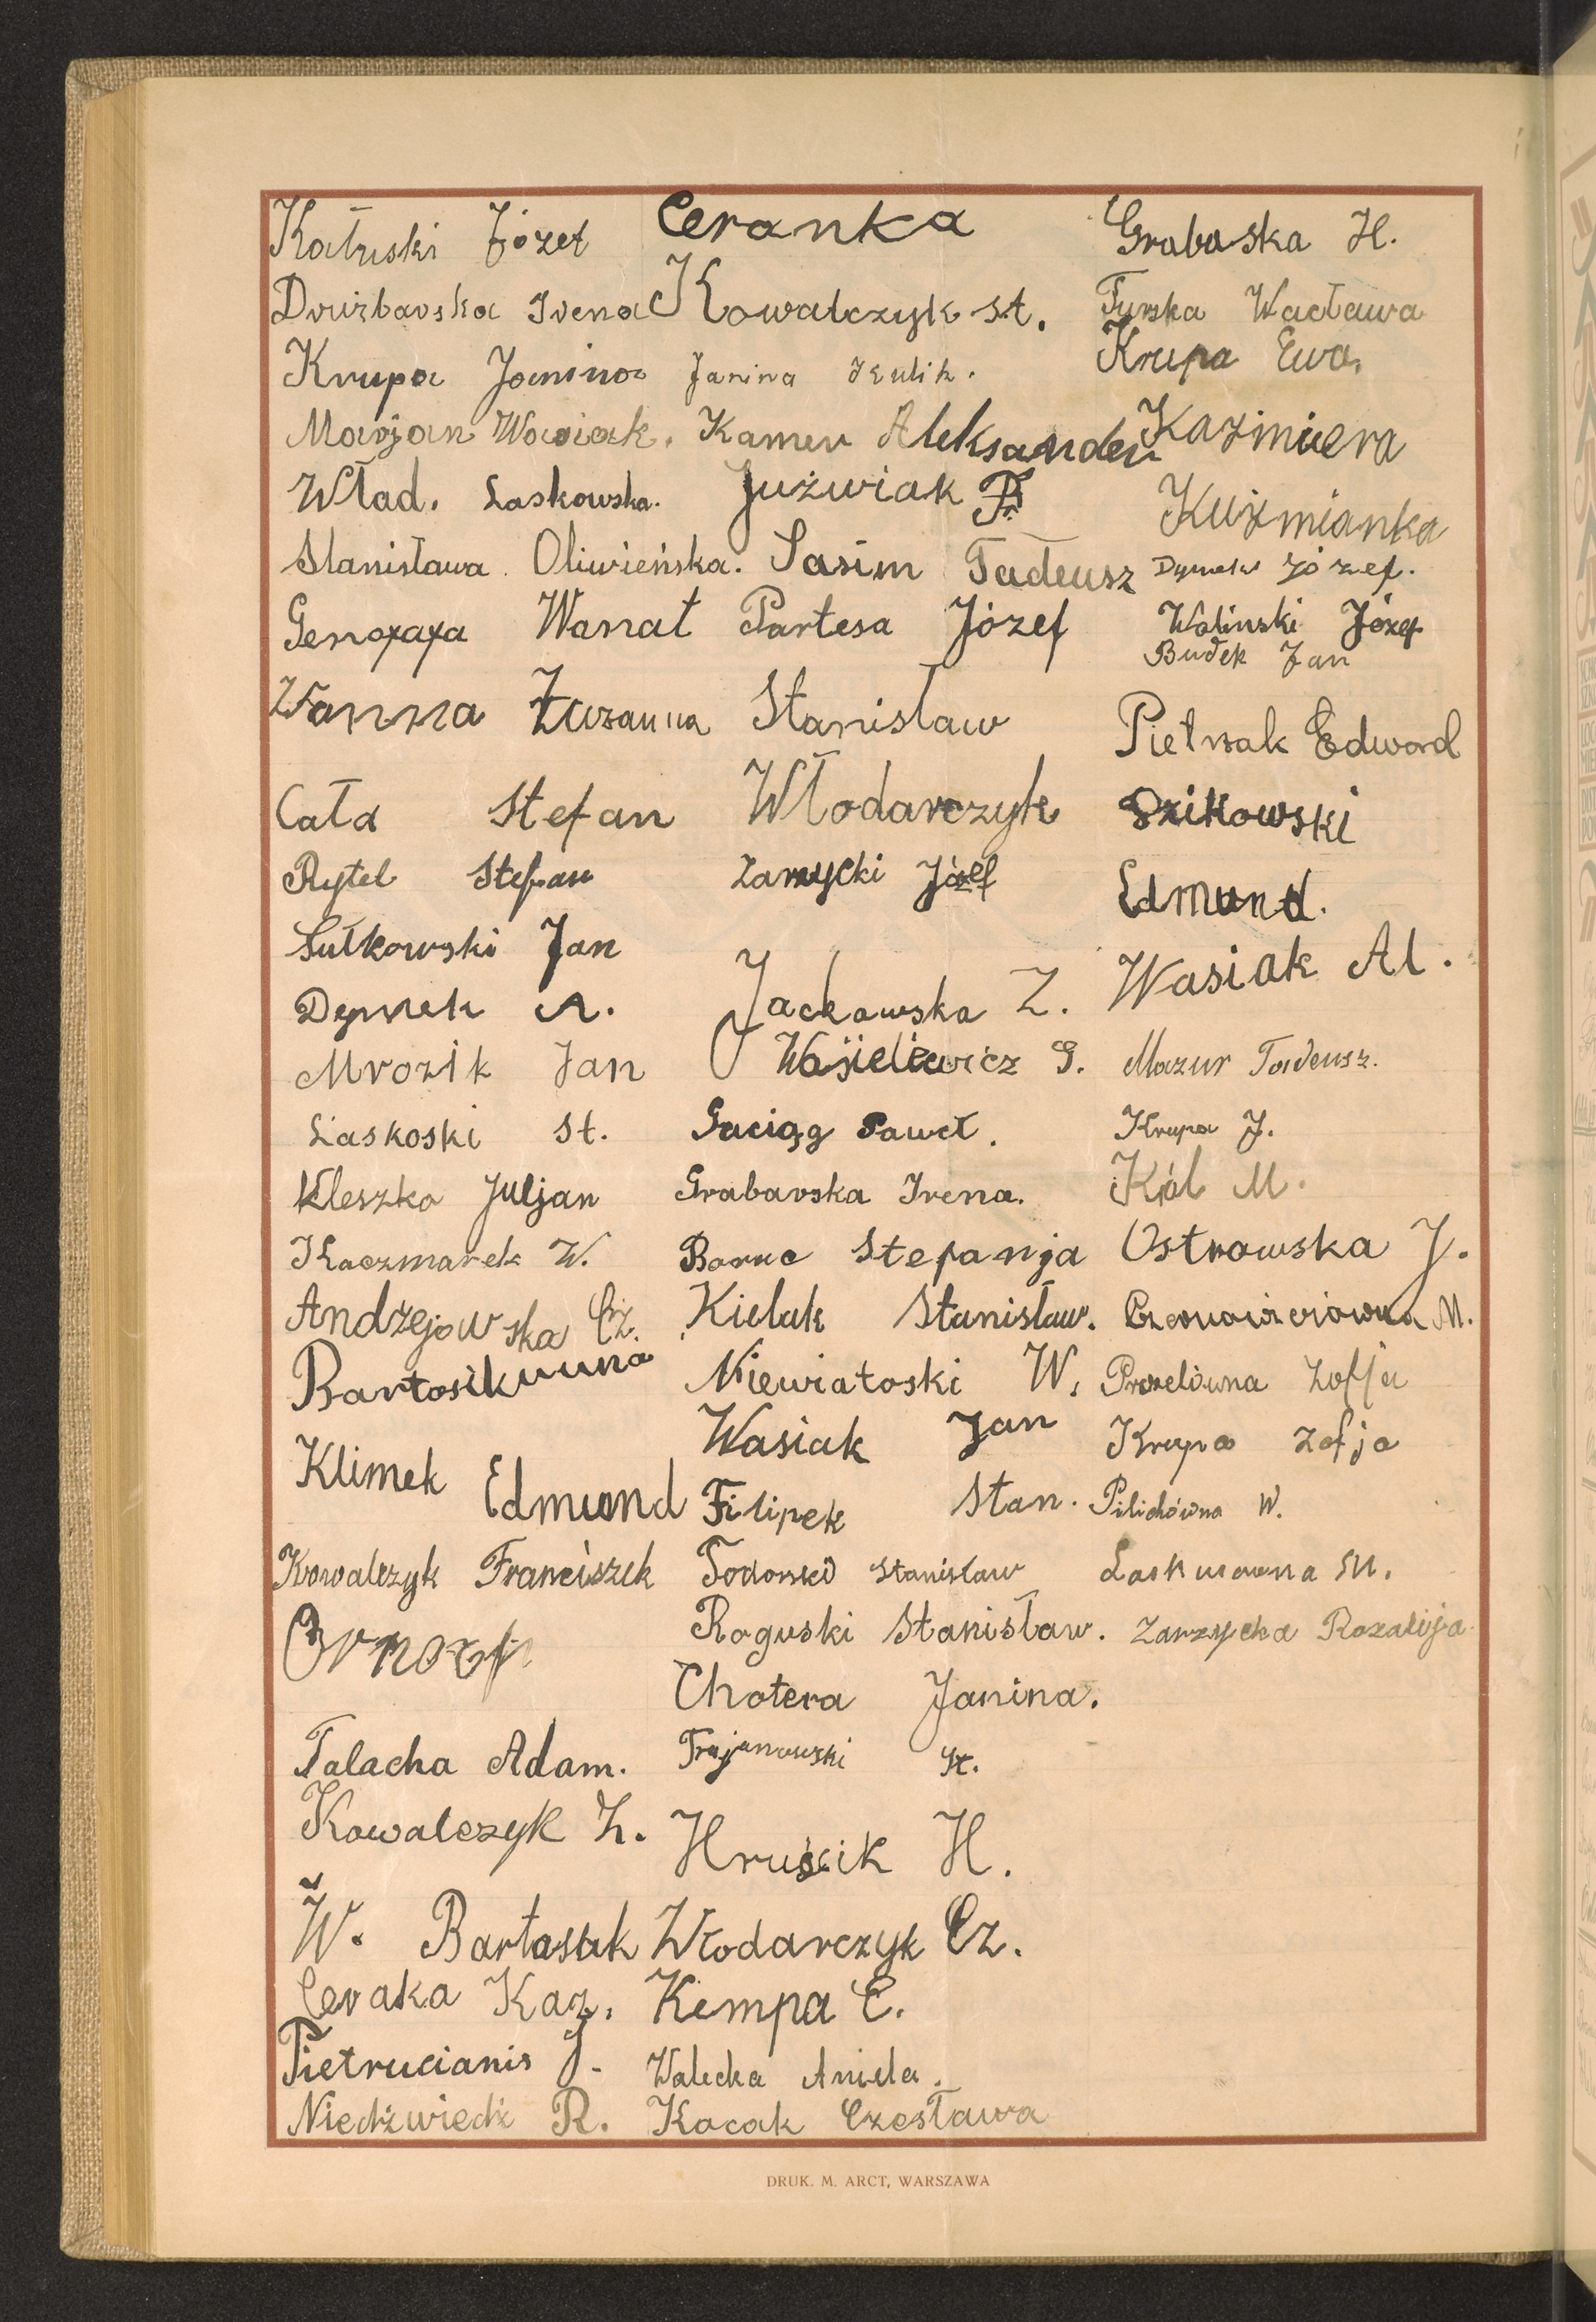 Kałuski Józef
Drużbavska Irena
Krupa Janina
Marjan Wasiak.
Wład. Laskowska.
Stanisława Oliwieńska.
Genofafa Wanat
Zuzanna
Cała Stefan
Rytel Stefan
Sułkowski Jan
Dymek A.
Mrozik Jan
Laskoski St.
Kleszko Juljan
Kaczmarek W.
Andzejowska Cz.
Bartosikuuna
Klimek Edmund
Kowalczyk Franciszek
Talacha Adam.
Kowalczyk Z.
W. Bartosiak
Ceraka Kaz.
Pietrucianis J.
Niedźwiedź R.
Ceranka
Kowalczyk St.
Janina Kulik.
Kamer Aleksander
Juźwiak Fr.
Sasim Tadeusz
Partesa Józef
Stanisław
Włodarczyk
Zarzycki Józef
Jackowska Z.
Wasielewicz G.
Gaciąg Paweł.
Grabavska Irena.
Baruc Stefanja
Kielak Stanisław.
Niewiatoski W.
Wasiak Jan
Filipek Stan.
Todorski Stanisław
Roguski Stanisław.
Chotera Janina.
Trojanowski St.
Hruścik H.
Włodarczyk Cz.
Kempa C.
Walecka Aniela.
Kacak Czesława
Grabaska H.
Turska Wacława
Krupa Ewa.
Kazimiera
Kuźmianka
Dymek Józef.
Woliński Józef
Budek Jan
Pietrzak Edward
Dzikowski
Edmund.
Wasiak Al.
Mazur Tadeusz.
Krupa J.
Król M.
Ostrowska J.
Zofja
Krupa Zofja
Pilichówna W.
Zarzycka Rozalija
DRUK. M. ARCT, WARSZAWA